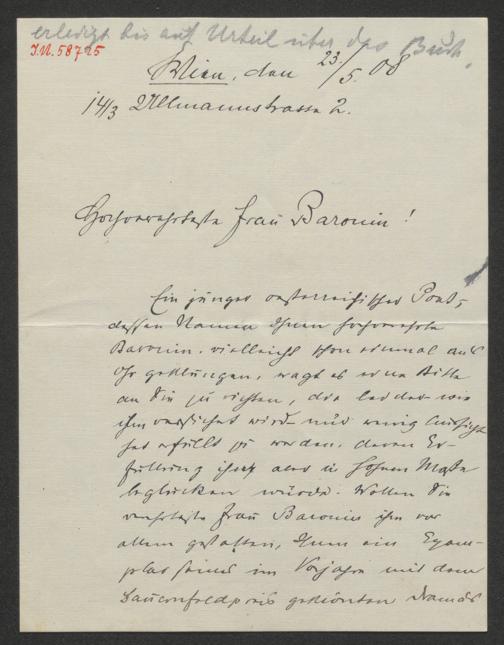 erledigt bis auf Urteil über das Buch.
J.N. 58725
Wien, den 23./5. 08
14/3 Ullmannstrasse 2.
Hochverehrteste Frau Baronin!
Ein junger oesterreichischer Poet,
dessen Namen Ihnen hochverehrte
Baronin, vielleicht schon einmal ans
Ohr geklungen, wagt es eine Bitte
an Sie zu richten, die leider wie
ihm versichert wird nur wenig Aussicht
hat erfüllt zu werden, deren Er-
füllung ihn aber in hohem Maße
beglücken würde. Wollen Sie
verehrteste Frau Baronin ihm vor
allem gestatten, Ihnen ein Exem-
plar seines im Vorjahre mit dem
Bauernfeldpreis gekrönten Dramas